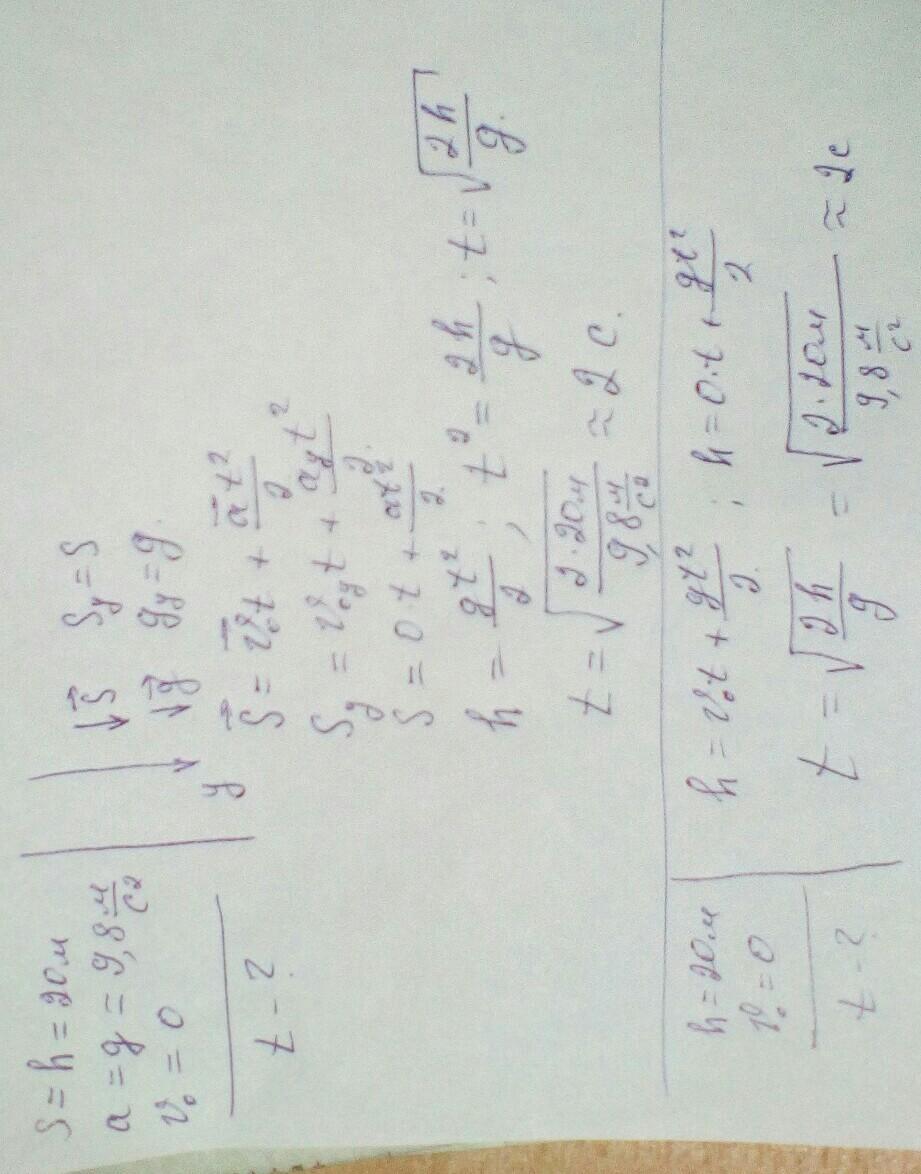 S = h = 20м
a = g = 9,8 м/с²
v₀ = 0
t - ?
↓S⃗ Sy = S
↓g⃗ gy = g.
y
S⃗ = v⃗₀t + a⃗t²/2
Sy = v₀yt + ayt²/2
S = 0·t + at²/2.
h = gt²/2, ; t² = 2h/g ; t = √(2h/g).
t = √(2·20м/9,8 м/с²) ≈ 2 с.
h = 20м
v₀ = 0
t - ?
h = v₀t + gt²/2 ; h = 0·t + gt²/2
t = √(2h/g) = √(2·20м/9,8 м/с²) ≈ 2с